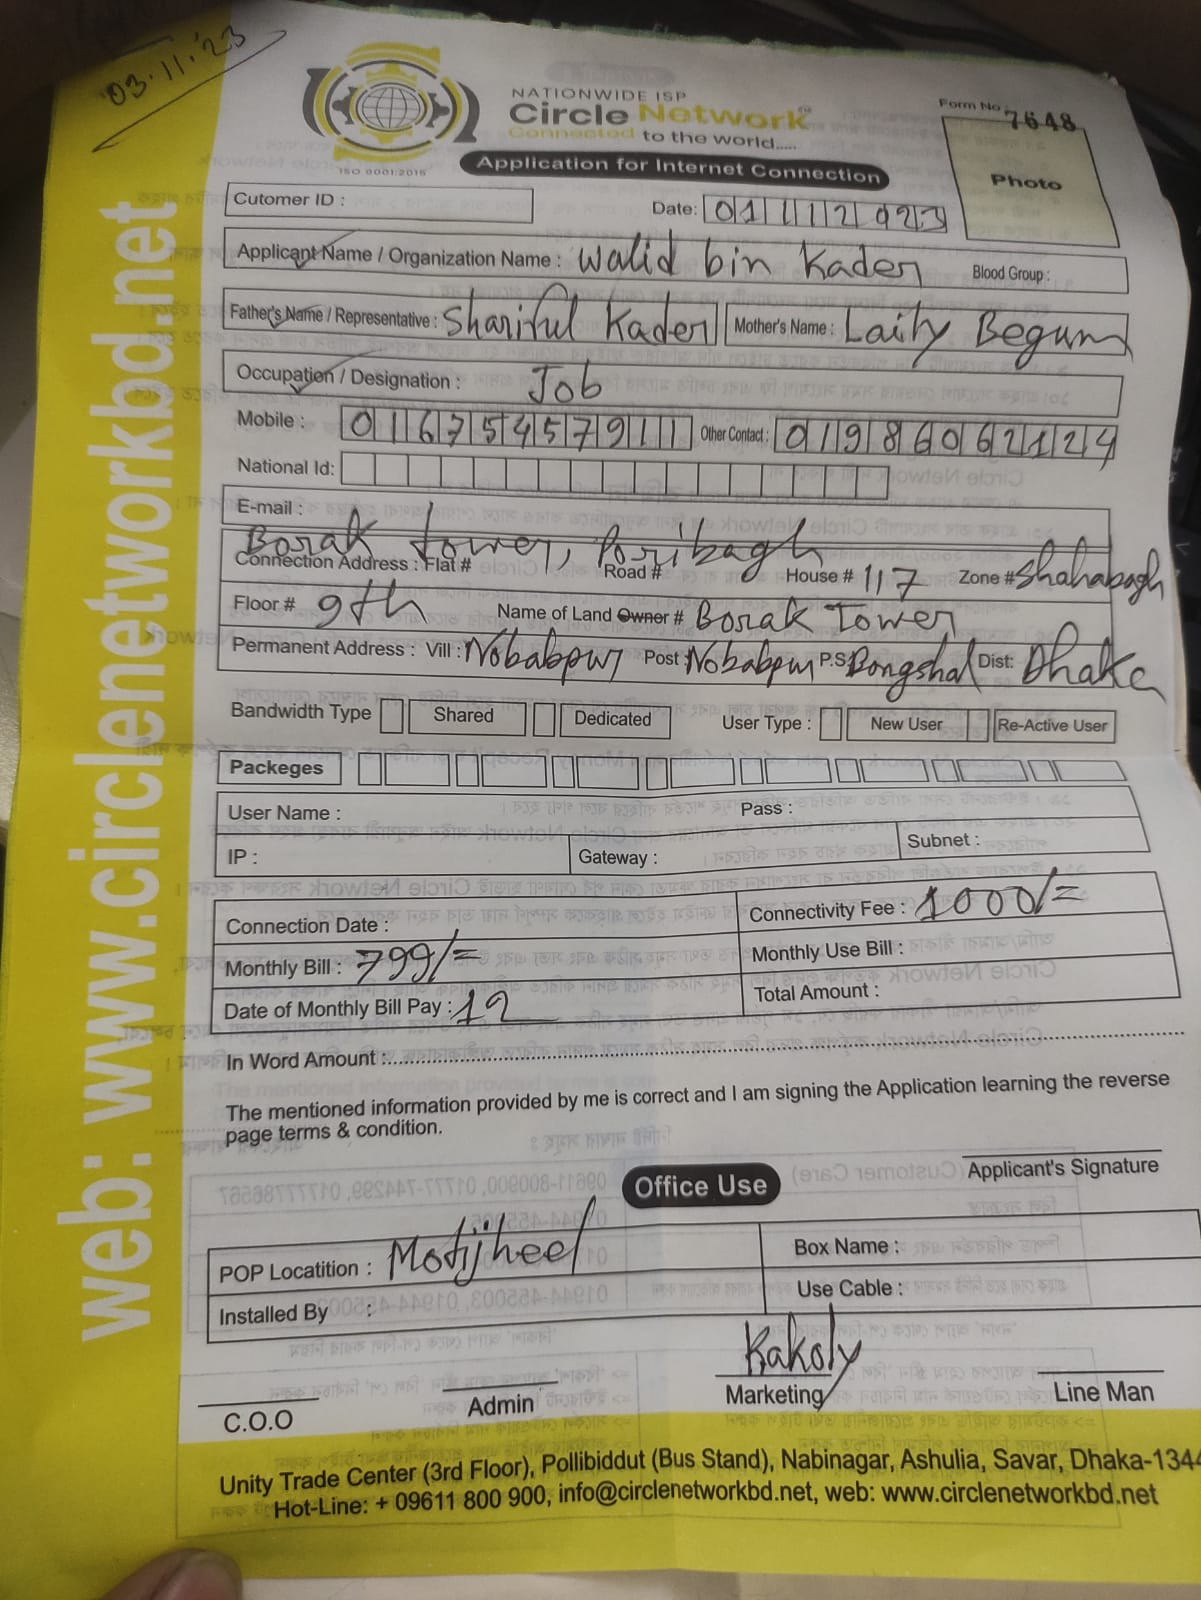 03.11.'23
NATIONWIDE ISP
Circle Network
Connected to the world.....
ISO 9001:2015
Application for Internet Connection
Form No 7648
Photo
Cutomer ID :
Date: 01112023
Applicant Name / Organization Name : Walid bin Kader Blood Group :
Father's Name / Representative : Shariful Kader Mother's Name : Laily Begum
Occupation / Designation : Job
Mobile : 01675457911 Other Contact : 01986062124
National Id:
E-mail :
Borak Tower, Poribagh
Connection Address : Flat # Road # House # 117 Zone # Shahabagh
Floor # 9th Name of Land Owner # Borak Tower
Permanent Address : Vill : Nobabpur Post : Nobabpur P.S Bongshal Dist: Dhaka
Bandwidth Type Shared Dedicated User Type : New User Re-Active User
Packeges
User Name : Pass :
IP : Gateway : Subnet :
Connection Date : Connectivity Fee : 1000/=
Monthly Bill : 799/= Monthly Use Bill :
Date of Monthly Bill Pay : 12 Total Amount :
In Word Amount :
The mentioned information provided by me is correct and I am signing the Application learning the reverse
page terms & condition.
Applicant's Signature
Office Use
POP Locatition : Motijheel Box Name :
Installed By : Use Cable :
Kakoly
C.O.O Admin Marketing Line Man
Unity Trade Center (3rd Floor), Pollibiddut (Bus Stand), Nabinagar, Ashulia, Savar, Dhaka-1344
Hot-Line: + 09611 800 900, info@circlenetworkbd.net, web: www.circlenetworkbd.net
web: www.circlenetworkbd.net